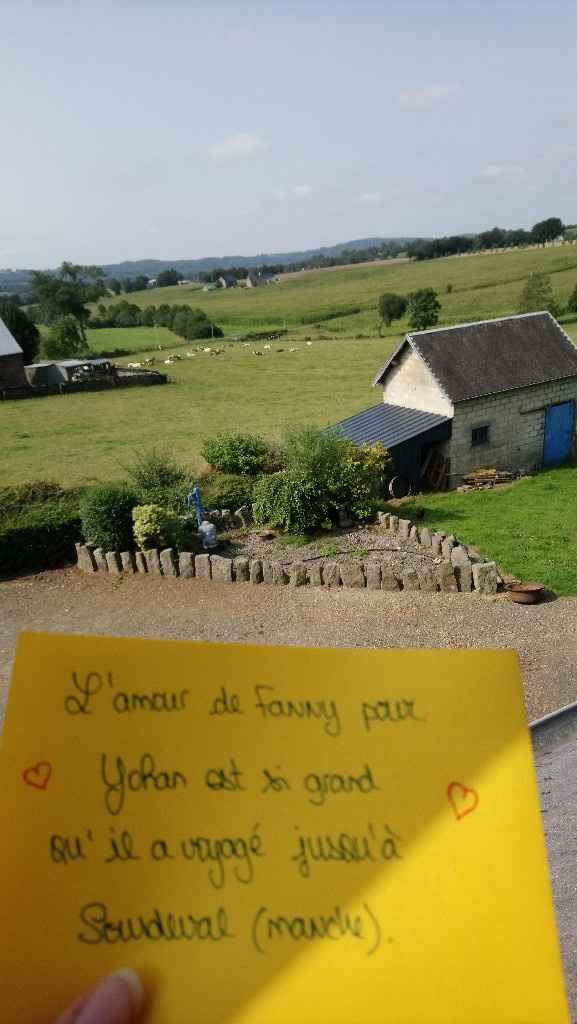 L'amour de Fanny pour
Yohan est si grand
qu'il a voyagé jusqu'à
Sourdeval (manche).